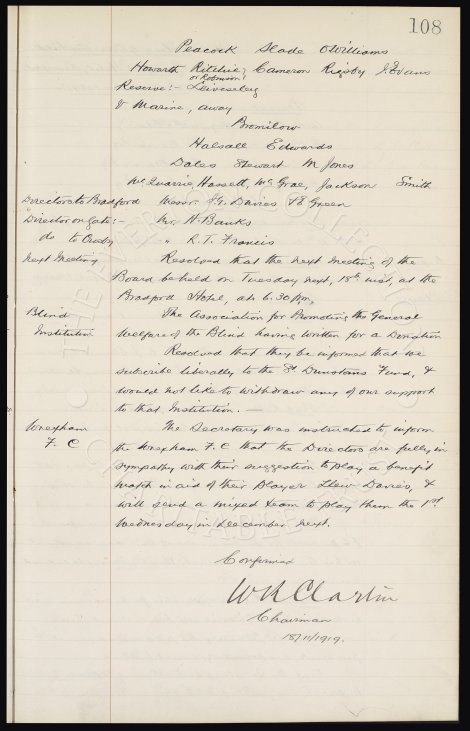 108
Peacock Slade O Williams
Howarth Ritchie, Cameron Rigsby J. Evans
or Robinson
Reserve:- Leivesley
V Marine, away
Bromilow
Halsall Edwards
Dales Stewart M Jones
McQuarrie, Hassett, McGrae, Jackson Smith
Directors to Bradford Messrs J.G. Davies & E Green
Director on Gate:- Mr. H. Banks
do to Crosby " R. T. Francis
Next Meeting Resolved that the next meeting of the
Board be held on Tuesday next, 18th inst, at the
Bradford Hotel, at 6.30 pm,
Blind The Association for Promoting the General
Institution Welfare of the Blind having written for a Donation
Resolved that they be informed that we
subscribe liberally to the St Dunstans Fund, &
would not like to withdraw any of our support
to that Institution.
Wrexham The Secretary was instructed to inform
F. C the Wrexham F. C that the Directors are fully in
sympathy with their suggestion to play a benefit
match in aid of their Player Llew Davies, &
will send a mixed team to play them the 1st
Wednesday in December next.
Confirmed
W R Clayton
Chairman
18/11/1919.